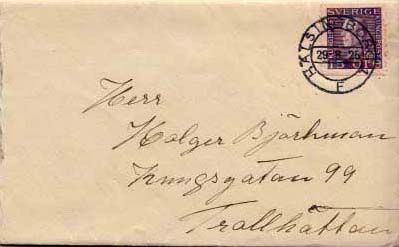 SVERIGE
HÄLSINGBORG
15
F
Herr
Holger Björkman
Kungsgatan 99
Trollhättan